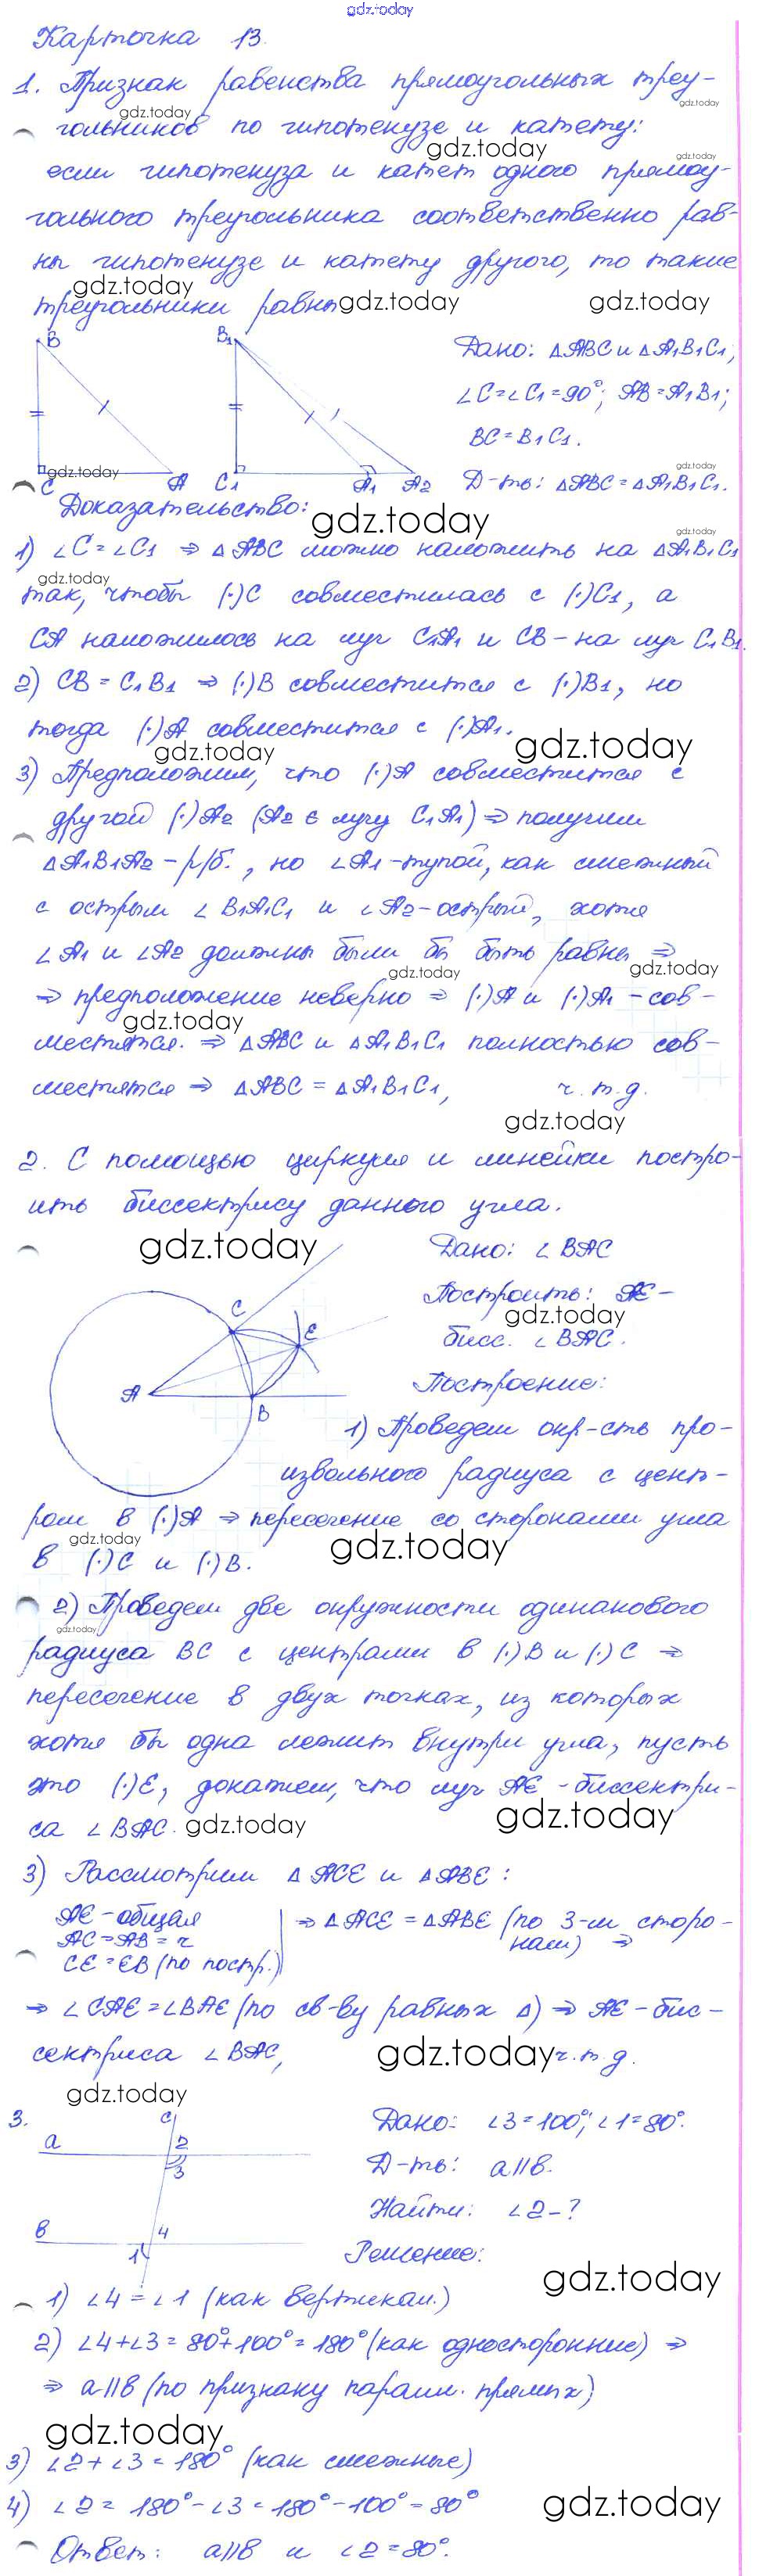 gdz.today
Карточка 13.
1. Признак равенства прямоугольных треу-
gdz.today gdz.today
гольников по гипотенузе и катету:
gdz.today gdz.today
если гипотенуза и катет одного прямоу-
гольного треугольника соответственно рав-
ны гипотенузе и катету другого, то такие
gdz.today
треугольники равны gdz.today gdz.today
B B₁ Дано: △ABC и △A₁B₁C₁;
∠C=∠C₁=90°; AB=A₁B₁;
BC=B₁C₁.
gdz.today gdz.today
C A C₁ A₁ A₂ Д-ть: △ABC=△A₁B₁C₁.
Доказательство: gdz.today
gdz.today
1) ∠C=∠C₁ ⇒ △ABC можно наложить на △A₁B₁C₁
gdz.today
так, чтобы (·)C совместилась с (·)C₁, а
CA наложилось на луч C₁A₁ и CB – на луч C₁B₁.
2) CB = C₁B₁ ⇒ (·)B совместится с (·)B₁, но
тогда (·)A совместится с (·)A₁.
gdz.today gdz.today
3) Предположим, что (·)A совместится с
другой (·)A₂ (A₂ ∈ лучу C₁A₁) ⇒ получим
△A₁B₁A₂ – р/б., но ∠A₁ – тупой, как смежный
с острым ∠B₁A₁C₁ и ∠A₂ – острый, хотя
∠A₁ и ∠A₂ должны были бы быть равны ⇒
gdz.today gdz.today
⇒ предположение неверно ⇒ (·)A и (·)A₁ – сов-
gdz.today
местятся. ⇒ △ABC и △A₁B₁C₁ полностью сов-
местятся ⇒ △ABC = △A₁B₁C₁, ч.т.д.
gdz.today
2. С помощью циркуля и линейки постро-
ить биссектрису данного угла.
gdz.today Дано: ∠BAC
Построить: AE –
gdz.today
бисс. ∠BAC.
C E A B
Построение:
1) Проведем окр-сть про-
извольного радиуса с цент-
ром в (·)A ⇒ пересечение со сторонами угла
gdz.today gdz.today
в (·)C и (·)B.
2) Проведем две окружности одинакового
gdz.today
радиуса BC с центрами в (·)B и (·)C ⇒
пересечение в двух точках, из которых
хотя бы одна лежит внутри угла, пусть
это (·)E, докажем, что луч AE – биссектри-
са ∠BAC. gdz.today gdz.today
3) Рассмотрим △ACE и △ABE:
AE – общая
AC=AB=r
CE=EB (по постр.)
⇒ △ACE = △ABE (по 3-м сторо-
нам) ⇒
⇒ ∠CAE=∠BAE (по св-ву равных △) ⇒ AE – бис-
сектриса ∠BAC, gdz.today ч.т.д.
gdz.today
3. c Дано: ∠3=100°; ∠1=80°.
a 2
3 Д-ть: a||b.
Найти: ∠2–?
b 4
1 Решение:
gdz.today
1) ∠4=∠1 (как вертикал.)
2) ∠4+∠3=80°+100°=180° (как односторонние) ⇒
⇒ a||b (по признаку паралл. прямых)
gdz.today
3) ∠2+∠3=180° (как смежные)
4) ∠2=180°–∠3=180°–100°=80° gdz.today
Ответ: a||b и ∠2=80°.